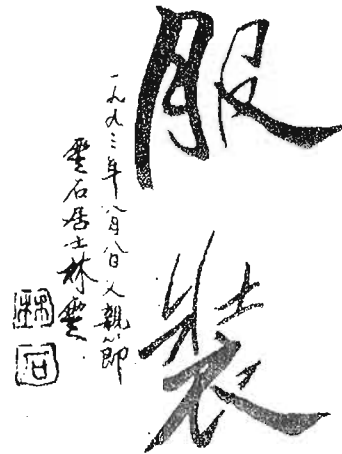 服裝
一九九三年八月八日父親節
雲石居士林雲
林
石